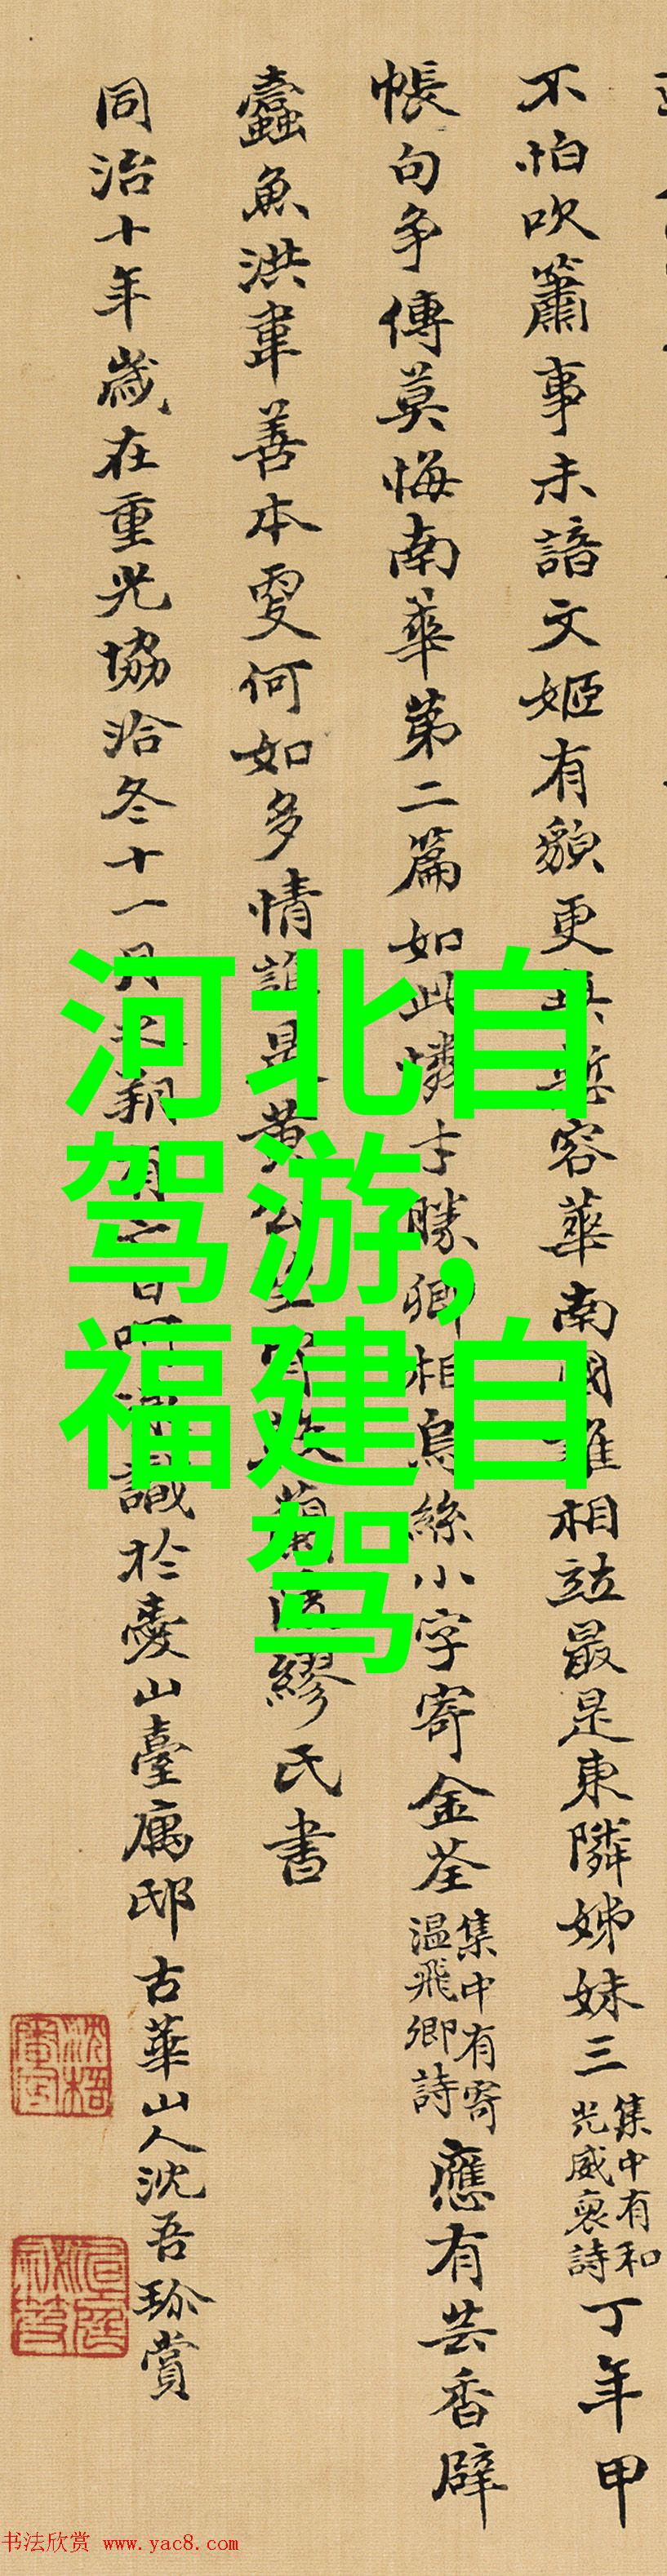 不怕吹簫事未諳文姬有貌更 容華南國誰相竝最是東隣姊妹三集中有和光威裒詩丁年甲
帳句爭傳莫悔南華第二篇如此憐才勝卿相烏絲小字寄金荃集中有寄温飛卿詩應有芸香辟
蠹魚洪韋善本叓何如多情誰是黃 繆氏書
同治十年歲在重光協洽冬十一月 朔 識於 山臺寓邸古華山人沈吾珎賞
河北自
驾游,
福建自
驾
书法欣赏 www.yac8.com